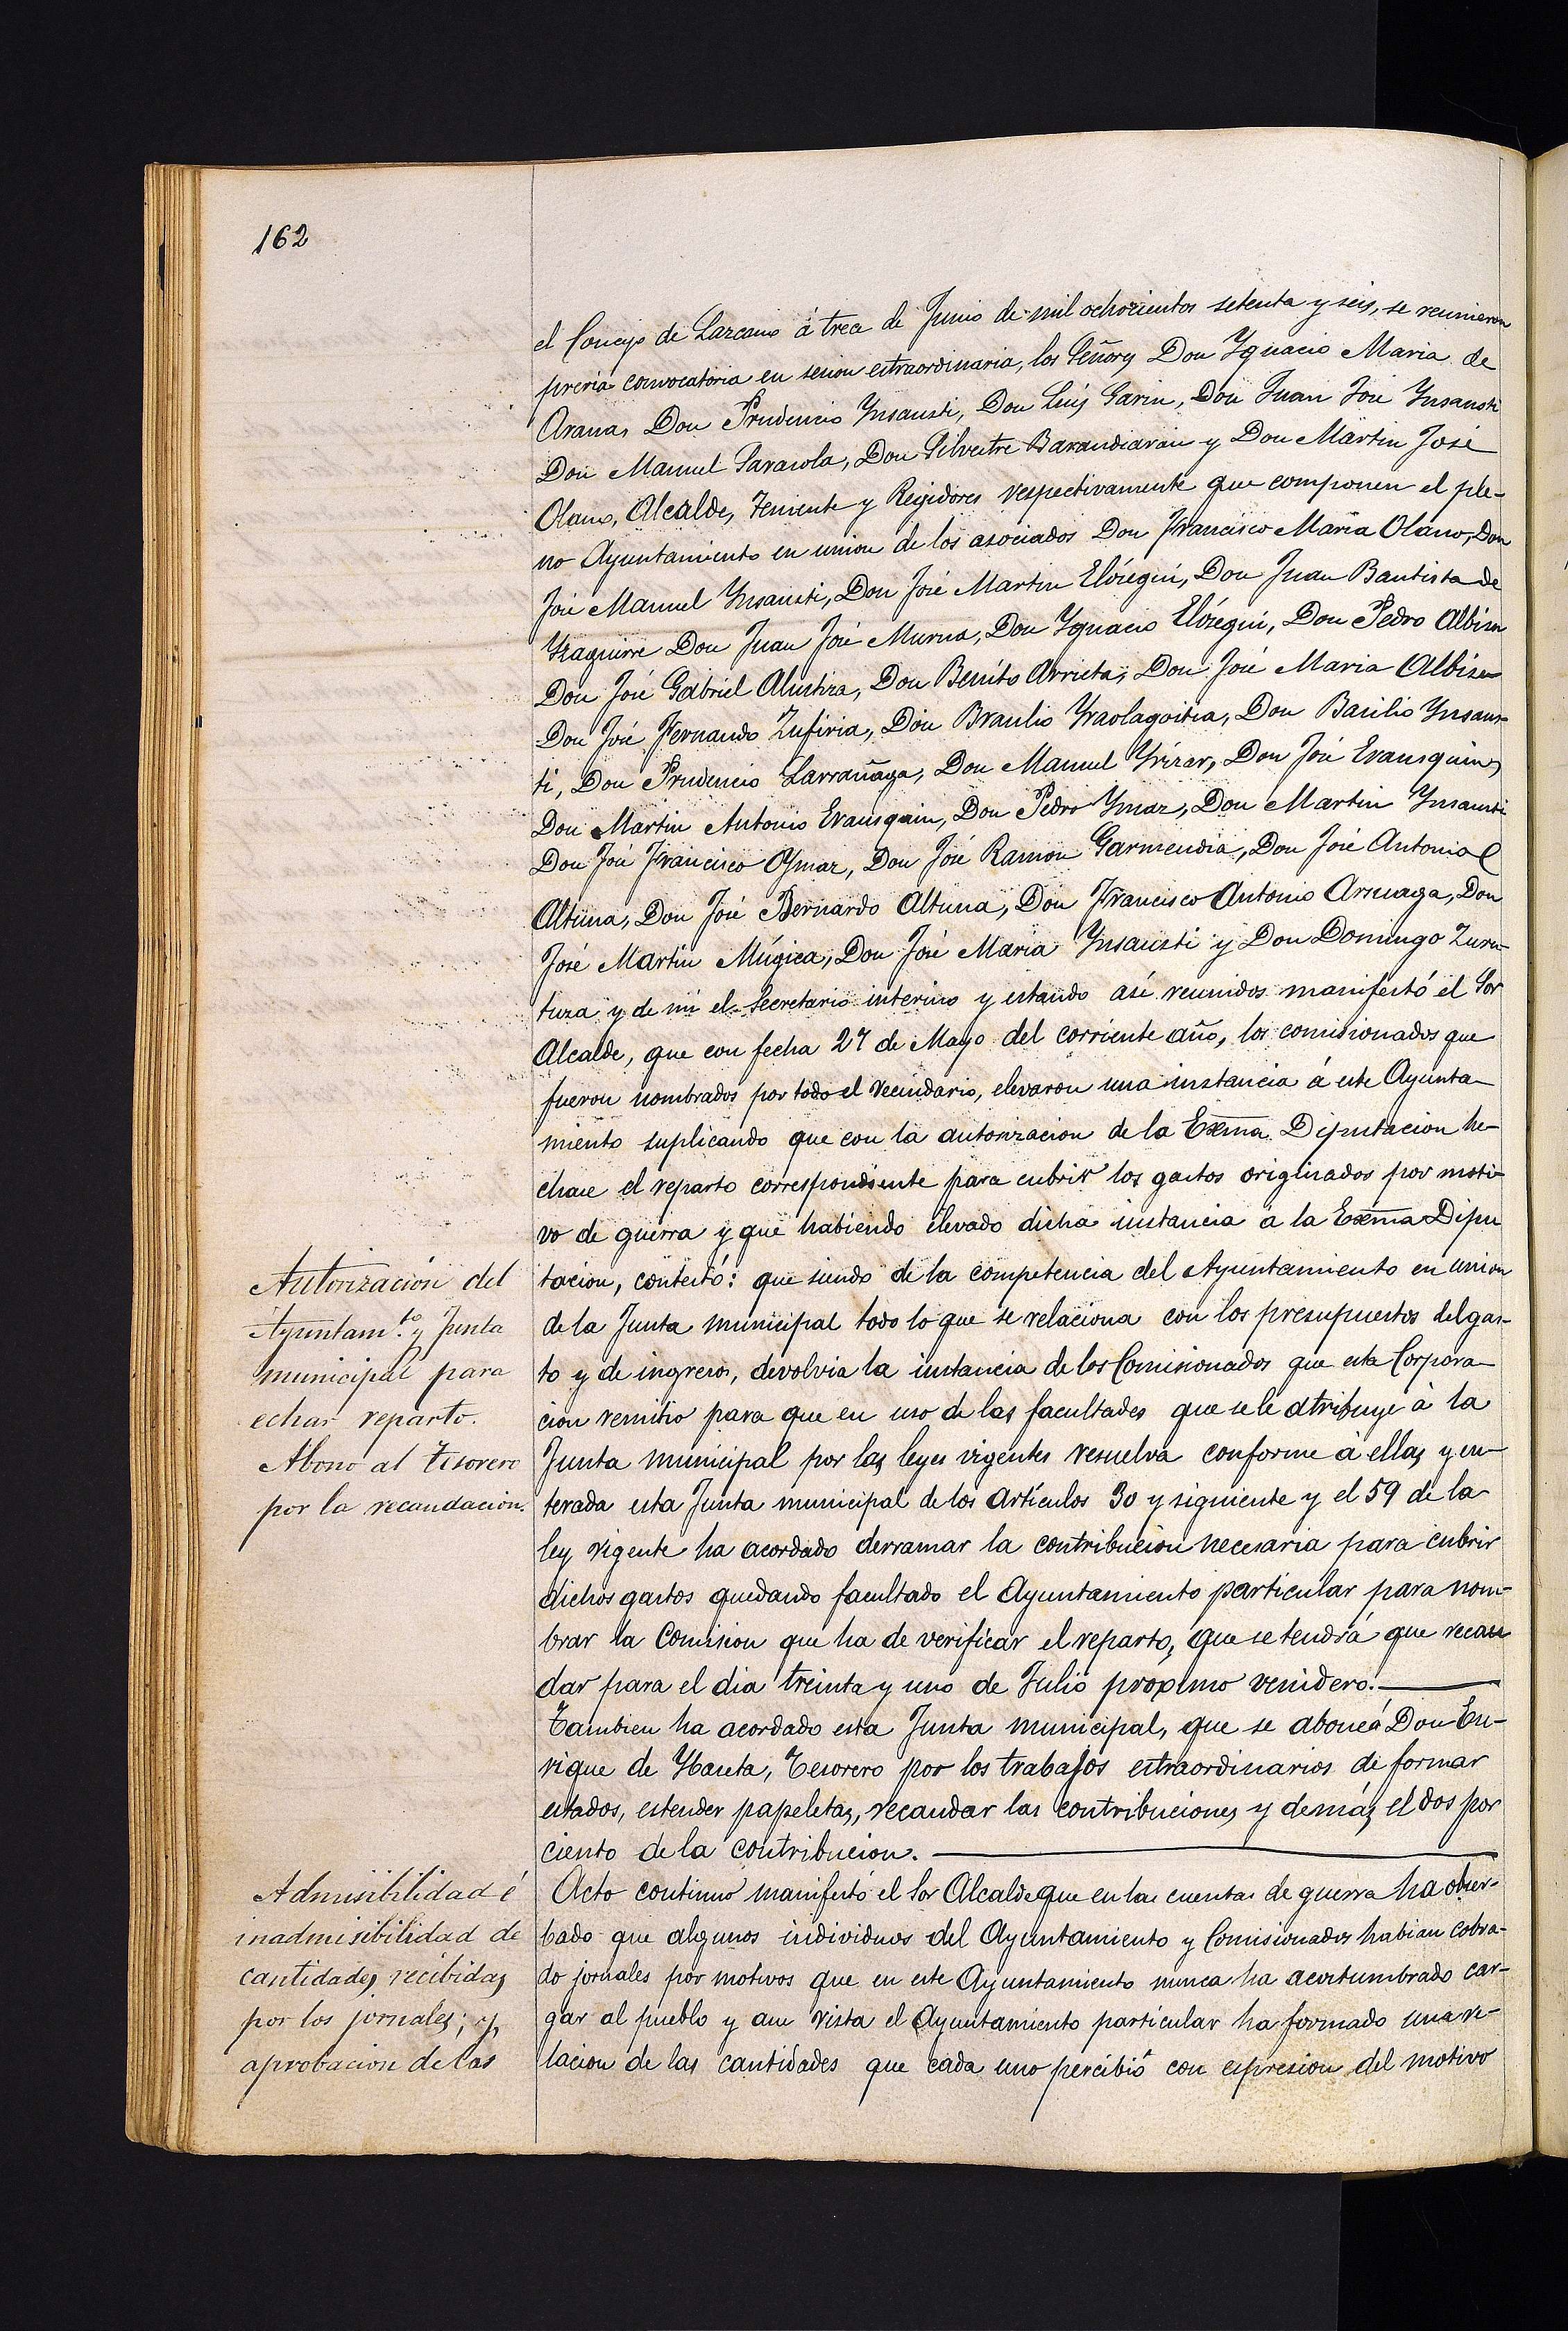 162
el Concejo de Lazcano á trece de Junio de mil ochocientos setenta y seis, se reunieron
prévia convocatoria en sesion estraordinaria, los Señores Don Ygnacio Maria de
Arana, Don Prudencio Ynsausti, Don Luis Garin, Don Juan José Ynsausti
Don Manuel Garaiola, Don Silvestre Barandiarán y Don Martin José
Olano, Alcalde, Teniente y Regidores respectivamente que componen el ple-
no Ayuntamiento en union de los asociados Don Francisco Maria Olano, Don
José Manuel Ynsausti, Don José Martin Elósegui, Don Juan Bautista de
Yzaguirre Don Juan José Murua, Don Ygnacio Elósegui, Don Pedro Albisu
Don José Gabriel Alustiza, Don Benito Arrieta, Don José Maria Albisu
Don José Fernando Zufiria, Don Braulio Yraolagoitia, Don Basilio Ynsaus-
ti, Don Prudencio Larrañaga, Don Manuel Yrizar, Don José Erausquin,
Don Martin Antonio Erausquin, Don Pedro Ymaz, Don Martin Ynsausti
Don José Francisco Ymaz, Don José Ramon Garmendia, Don José Antonio
Altuna, Don José Bernardo Altuna, Don Francisco Antonio Arruaga, Don
José Martin Múgica, Don José Maria Ynsausti y Don Domingo Zuru-
tuza y de mi el Secretario interino y estando asi reunidos manifestó el Sor
Alcalde, que con fecha 27 de Mayo del corriente año, los comisionados que
fueron nombrados por todo el vecindario, elevaron una instancia á este Ayunta-
miento suplicando que con la autorizacion de la Exma Diputacion he-
chase el reparto correspondiente para cubrir los gastos originados por moti-
vo de guerra y que habiendo elevado dicha instancia á la Exma Dipu
Autorización del
Ayuntam.to y Junta
municipal para
echar reparto.
Abono al Tesorero
por la recaudacion.
tacion, contestó: que siendo de la competencia del Ayuntamiento en union
de la Junta municipal todo lo que se relaciona con los presupuestos del gas-
to y de ingresos, devolvia la instancia de los Comisionados que esta Corpora-
cion remitio para que en uso de las facultades que se le atribuye á la
Junta municipal por las leyes vigentes resuelva conforme á ellas y en-
terada esta Junta municipal de los artículos 30 y siguiente y el 59 de la
ley vigente ha acordado derramar la contribucion necesaria para cubrir
dichos gastos quedando facultado el Ayuntamiento particular para nom-
brar la Comision que ha de verificar el reparto, que se tendrá que recau
dar para el dia treinta y uno de Julio proximo venidero.
Tambien ha acordado esta Junta municipal, que se abone á Don En-
rique de Ybaseta, Tesorero por los trabajos estraordinarios de formar
estados, estender papeletas, recaudar las contribuciones y demás el dos por
ciento de la contribucion.
Admisibilidad é
inadmisibilidad de
cantidades recibidas
por los jornales; y
aprobacion de las
Acto continuo manifestó el Sor Alcalde que en las cuentas de guerra ha obser-
bado que algunos individuos del Ayuntamiento y Comisionados habian cobra-
do jornales por motivos que en este Ayuntamiento nunca ha acostumbrado car-
gar al pueblo y aun vista el Ayuntamiento particular ha formado una re-
lacion de las cantidades que cada uno percibió con espresion del motivo